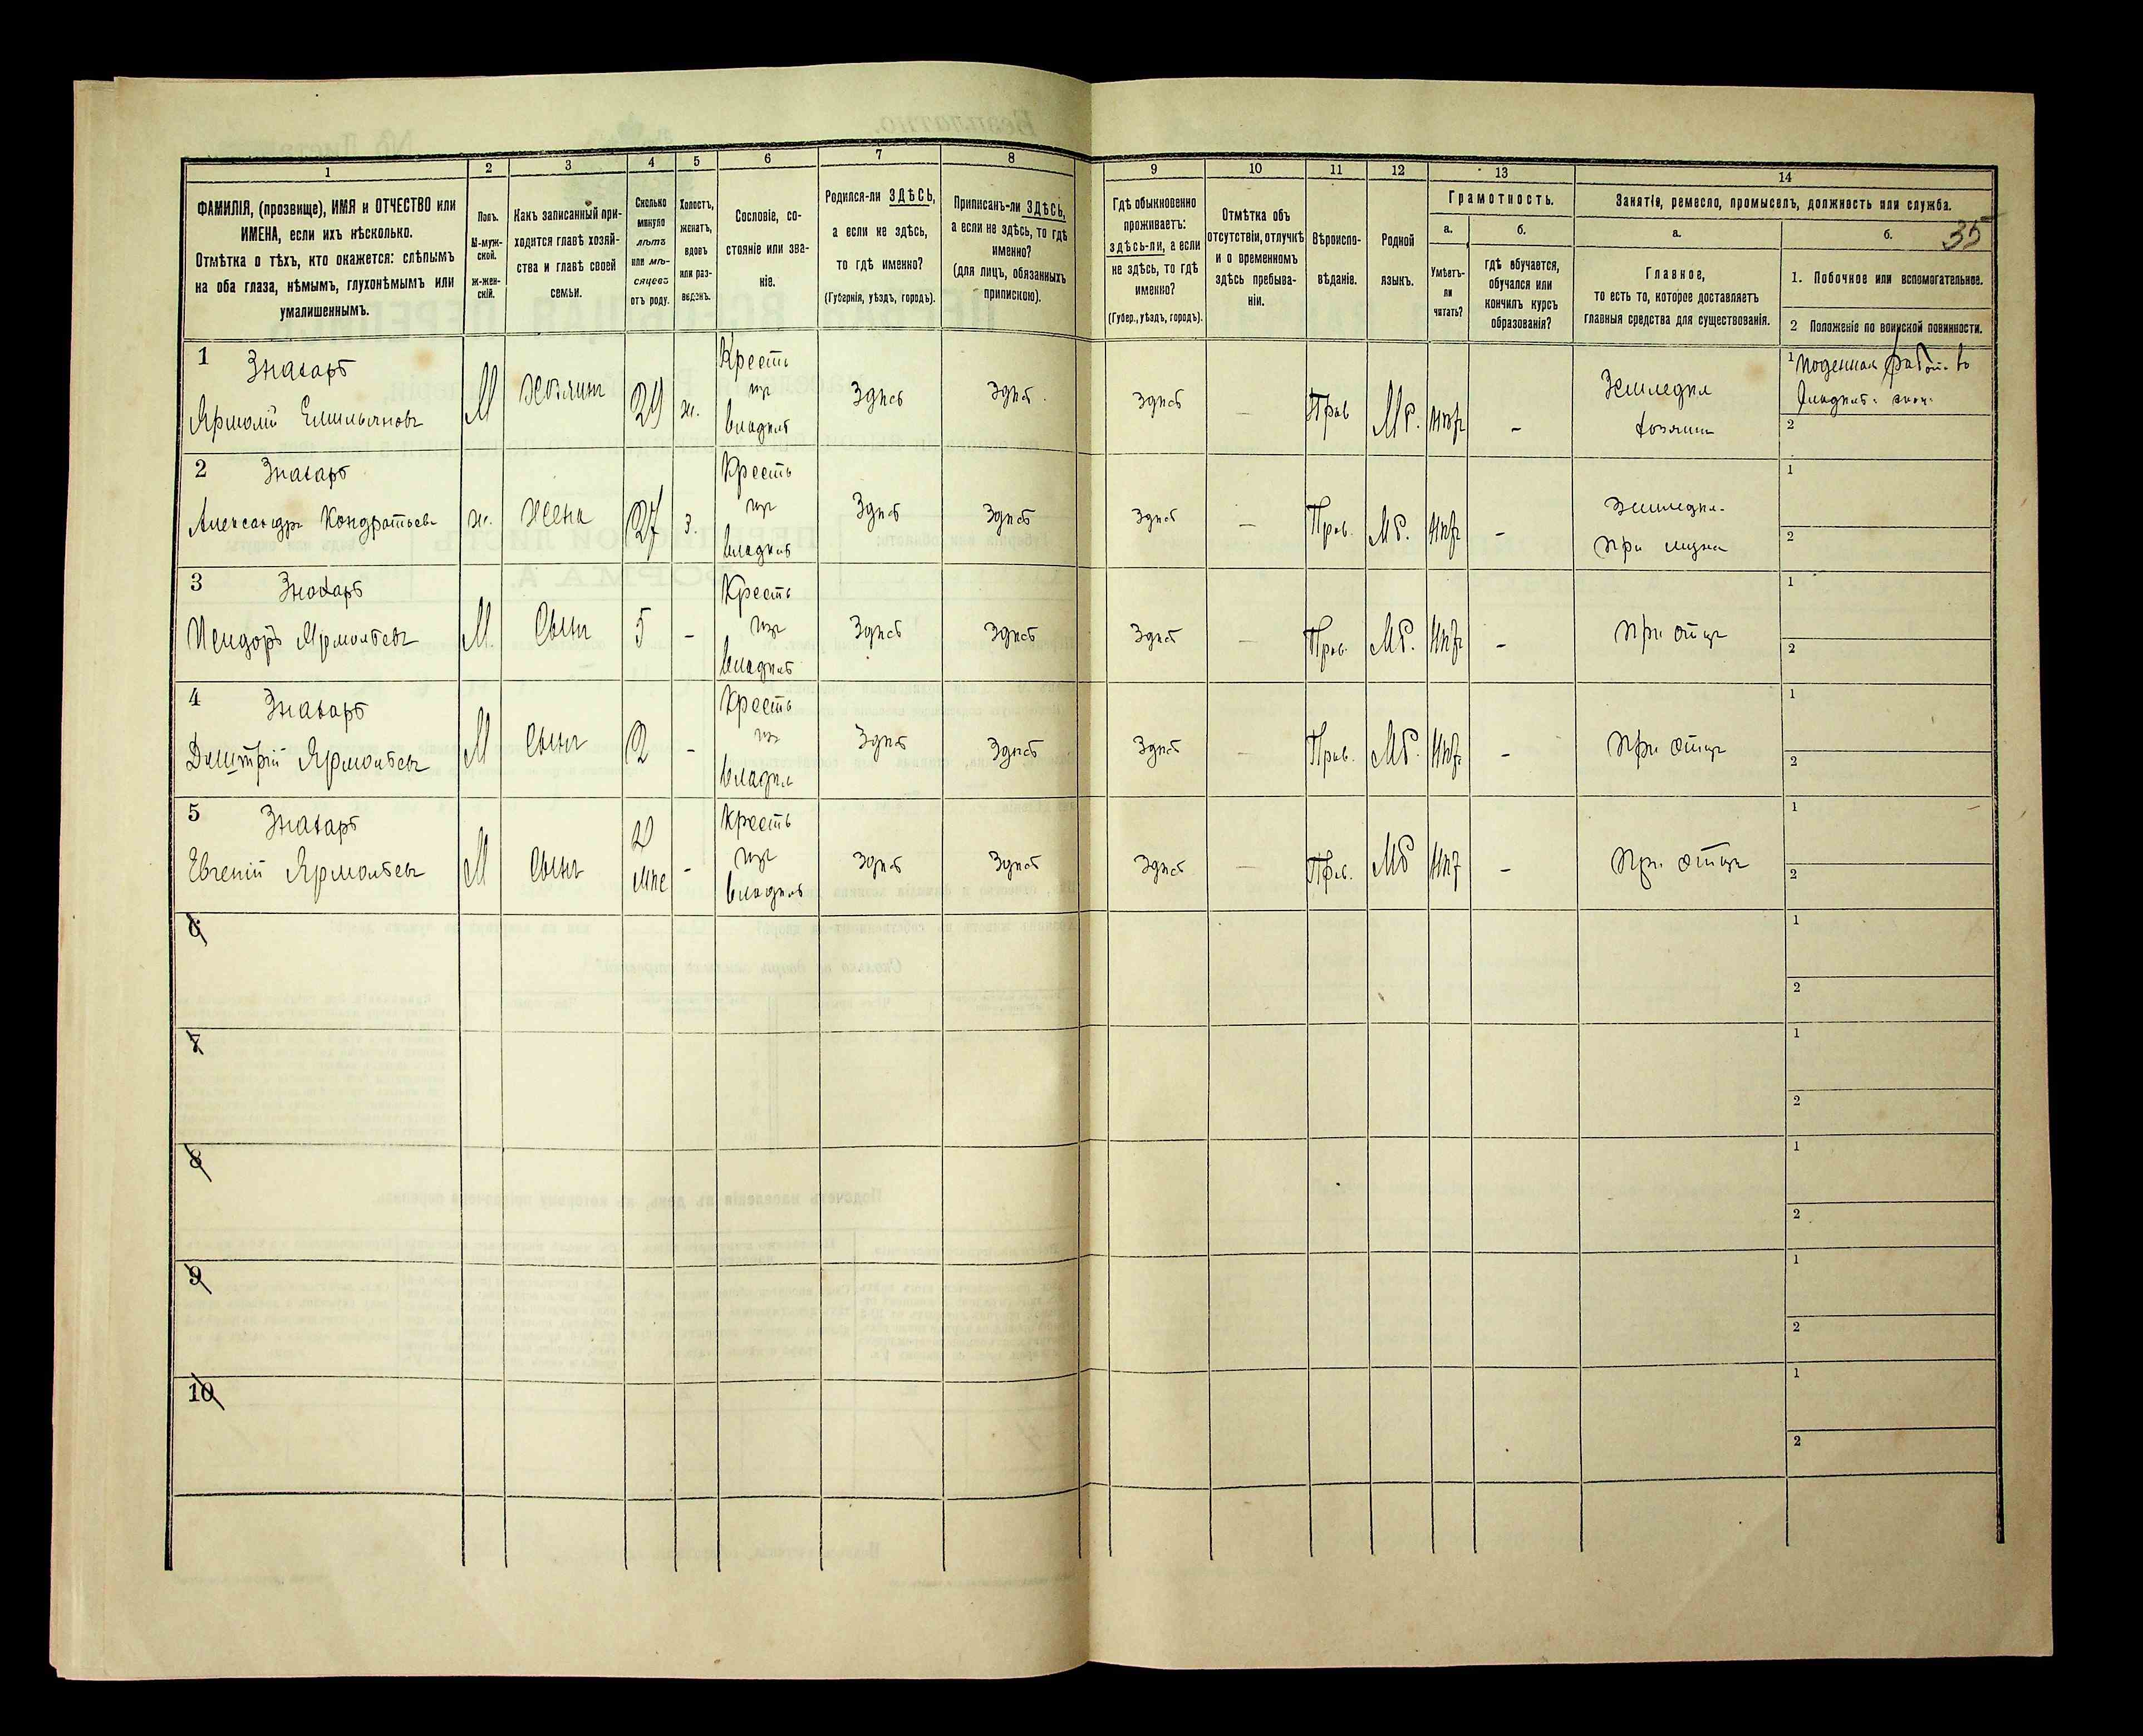 1
2
3
4
5
6
7
8
ФАМИЛІЯ, (прозвище), ИМЯ и ОТЧЕСТВО или
ИМЕНА, если ихъ нѣсколько.
Отмѣтка о тѣхъ, кто окажется: слѣпымъ
на оба глаза, нѣмымъ, глухонѣмымъ или
умалишеннымъ.
Полъ.
М-муж-
ской.
Ж-жен-
скій.
Какъ записанный при-
ходится главѣ хозяй-
ства и главѣ своей
семьи.
Сколько
минуло
лѣтъ
или мѣ-
сяцевъ
отъ роду.
Холостъ,
женатъ,
вдовъ
или раз-
веденъ.
Сословіе, со-
стояніе или зва-
ніе.
Родился-ли ЗДѢСЬ,
а если не здѣсь,
то гдѣ именно?
(Губернія, уѣздъ, городъ).
Приписанъ-ли ЗДѢСЬ,
а если не здѣсь, то гдѣ
именно?
(для лицъ, обязанныхъ
припискою).
9
10
11
12
13
14
Гдѣ обыкновенно
проживаетъ:
здѣсь-ли, а если
не здѣсь, то гдѣ
именно?
(Губер., уѣздъ, городъ).
Отмѣтка объ
отсутствіи, отлучкѣ
и о временномъ
здѣсь пребыва-
ніи.
Вѣроиспо-
вѣданіе.
Родной
языкъ.
Грамотность.
а.
Умѣетъ-
ли
читать?
б.
гдѣ обучается,
обучался или
кончилъ курсъ
образованія?
Занятіе, ремесло, промыселъ, должность или служба.
а.
Главное,
то есть то, которое доставляетъ
главныя средства для существованія.
б.
35
1. Побочное или вспомогательное.
2 Положеніе по воинской повинности.
1 Знахарь
Ярмолій Емильяновъ
М
Хозяинъ
29
ж.
Кресть
изъ
владѣл
Здѣсь
Здѣсь
Здѣсь
—
Прав
Мр.
–
Земледѣл
хозяинъ
1 Поденная
2
2 Знахарь
Александра Кондратьева
ж.
Жена
27
з.
Кресть
изъ
владѣл
Здѣсь
Здѣсь
Здѣсь
—
Прав.
Мр.
–
Земледѣл.
При мужѣ
1
2
3 Знахарь
Исидоръ Ярмольевъ
М.
Сынъ
5
–
Кресть
изъ
владѣл
Здѣсь
Здѣсь
Здѣсь
—
Прав.
Мр.
–
При отцѣ
1
2
4 Знахарь
Дмитрій Ярмольевъ
М
Сынъ
2
–
Кресть
изъ
владѣл
Здѣсь
Здѣсь
Здѣсь
—
Прав.
Мр.
–
При отцѣ
1
2
5 Знахарь
Евгеній Ярмольевъ
М
Сынъ
–
Кресть
изъ
владѣл
Здѣсь
Здѣсь
Здѣсь
—
Прав.
Мр
–
При отцѣ
1
2
6
1
2
7
1
2
8
1
2
9
1
2
10
1
2